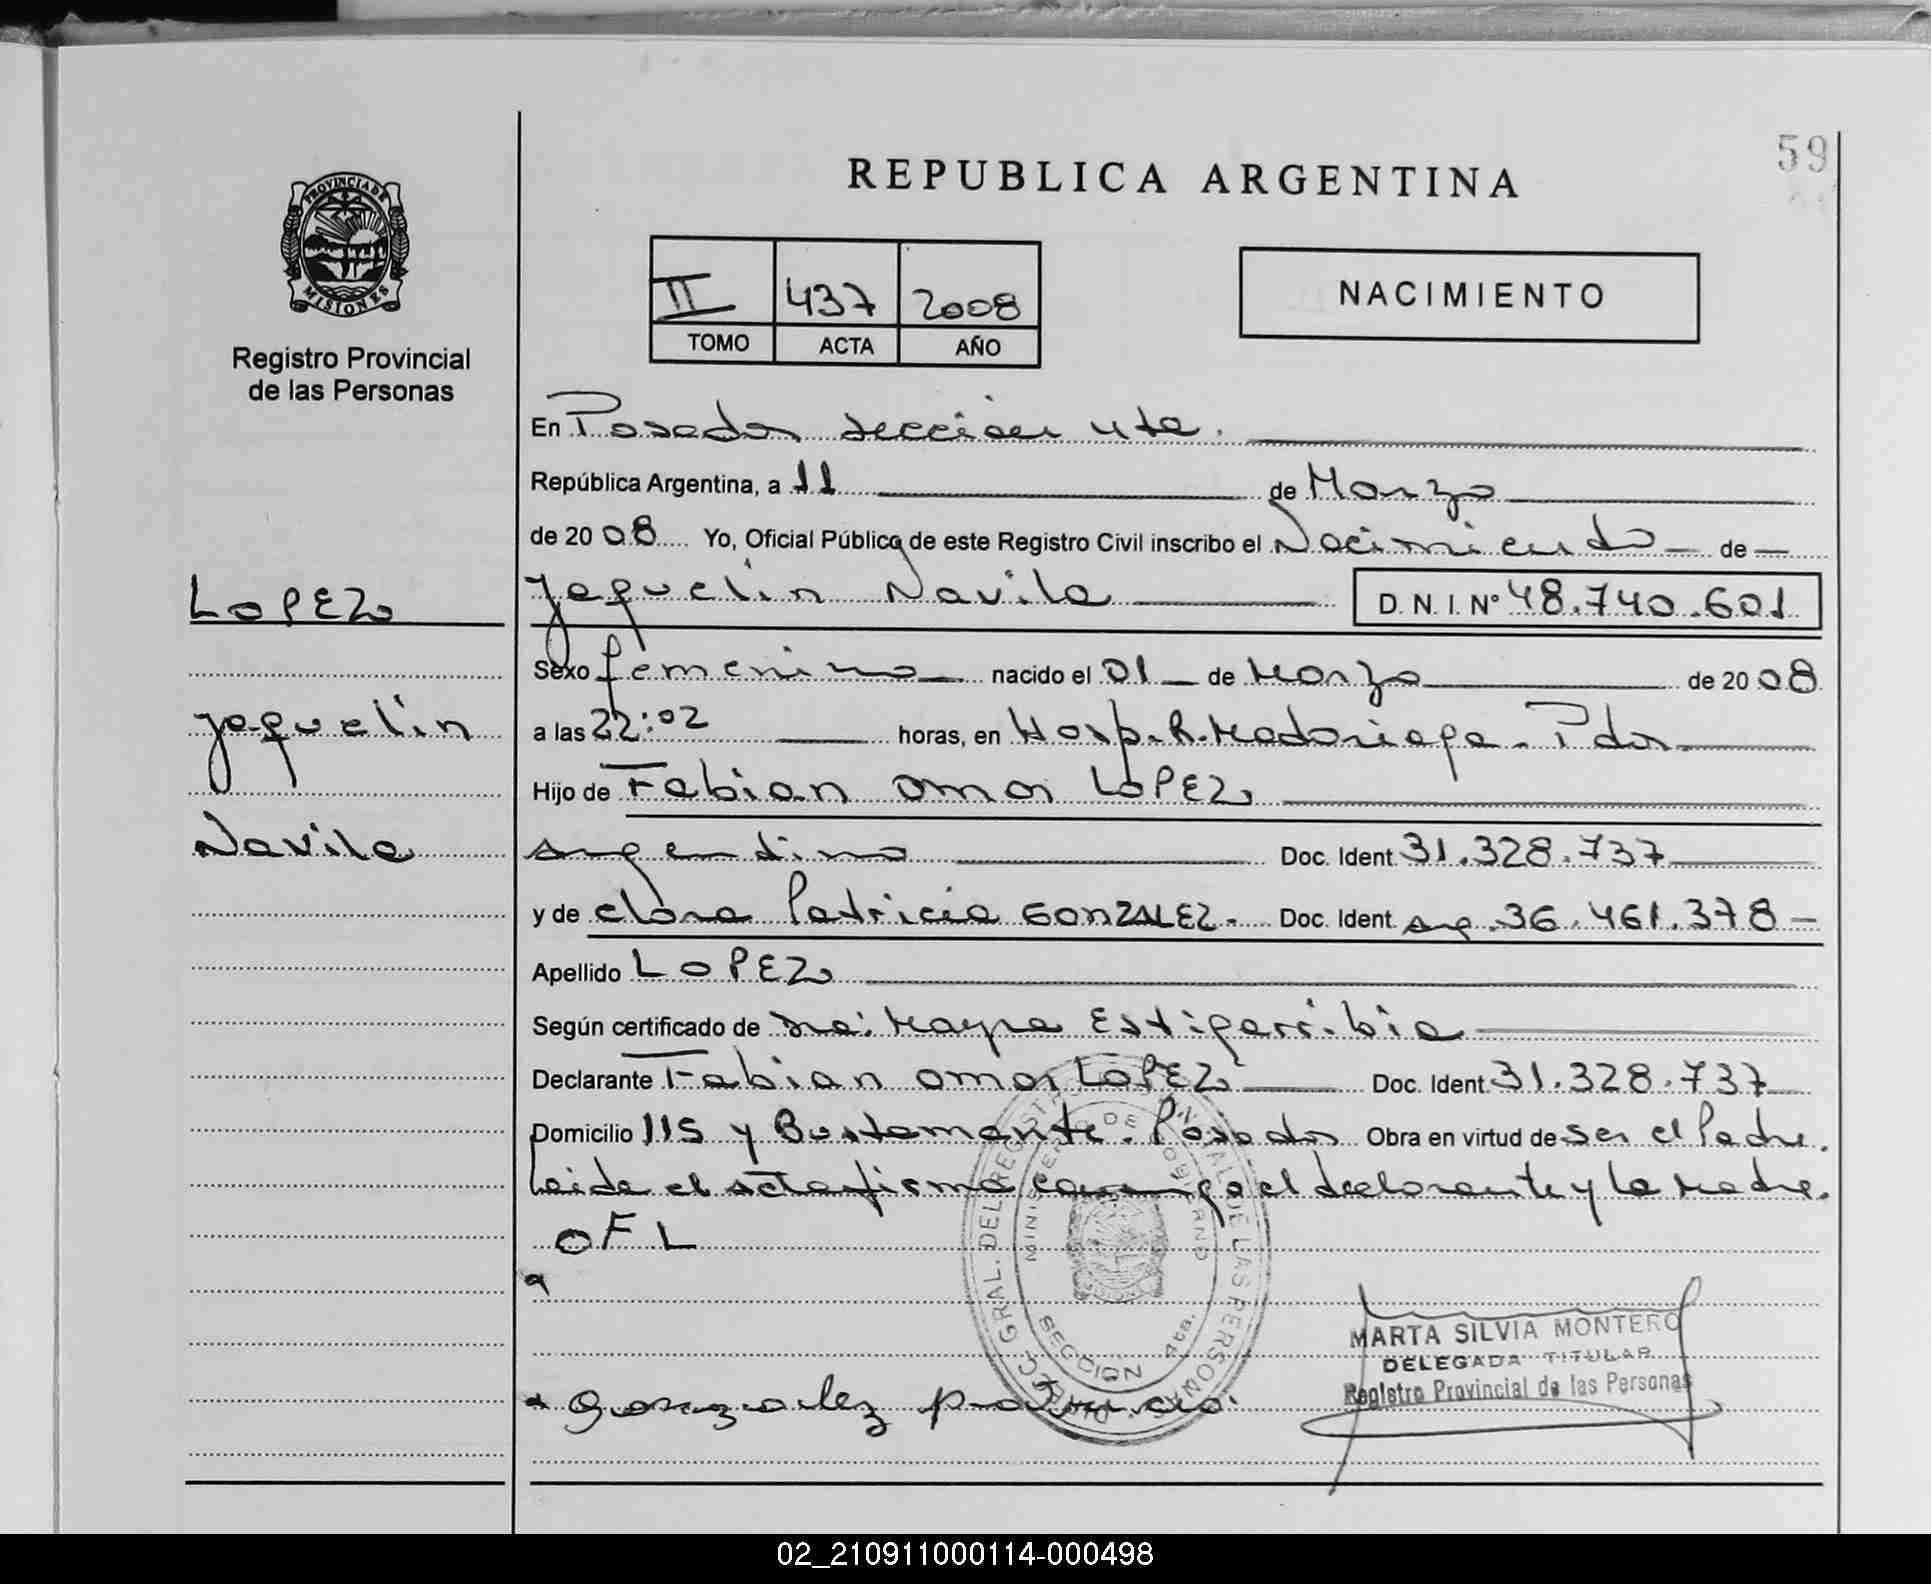 59
REPUBLICA ARGENTINA
PROVINCIA DE
MISIONES
Registro Provincial
de las Personas
II 437 2008
TOMO ACTA AÑO
NACIMIENTO
En Posadas sección 4ta.
República Argentina, a 11 de Marzo
de 2008 Yo, Oficial Público de este Registro Civil inscribo el Nacimiento de
LOPEZ
Jaquelin Navila D.N.I. Nº 48.740.601
Sexo femenino nacido el 01 de Marzo de 2008
Jaquelin
a las 22:02 horas, en Hosp. R. Madariaga - Pdas
Hijo de Fabian Omar LOPEZ
Navila
argentino Doc. Ident. 31.328.737
y de Patricia GONZALEZ. Doc. Ident. arg. 36.461.378
Apellido LOPEZ
Según certificado de Mayra Estigarribia
Declarante Fabian Omar LOPEZ Doc. Ident. 31.328.737
Domicilio 115 y Bustamante. Posadas Obra en virtud de ser el Padre.
Leida el acta firma conmigo el declarante y la Madre.
OFL
DIRECC. GRAL. DEL REGISTRO PROVINCIAL DE LAS PERSONAS
MINISTERIO DE GOBIERNO
SECCION 4ta.
MARTA SILVIA MONTERO
DELEGADA TITULAR
Registro Provincial de las Personas
Gonzalez patricia
02_210911000114-000498